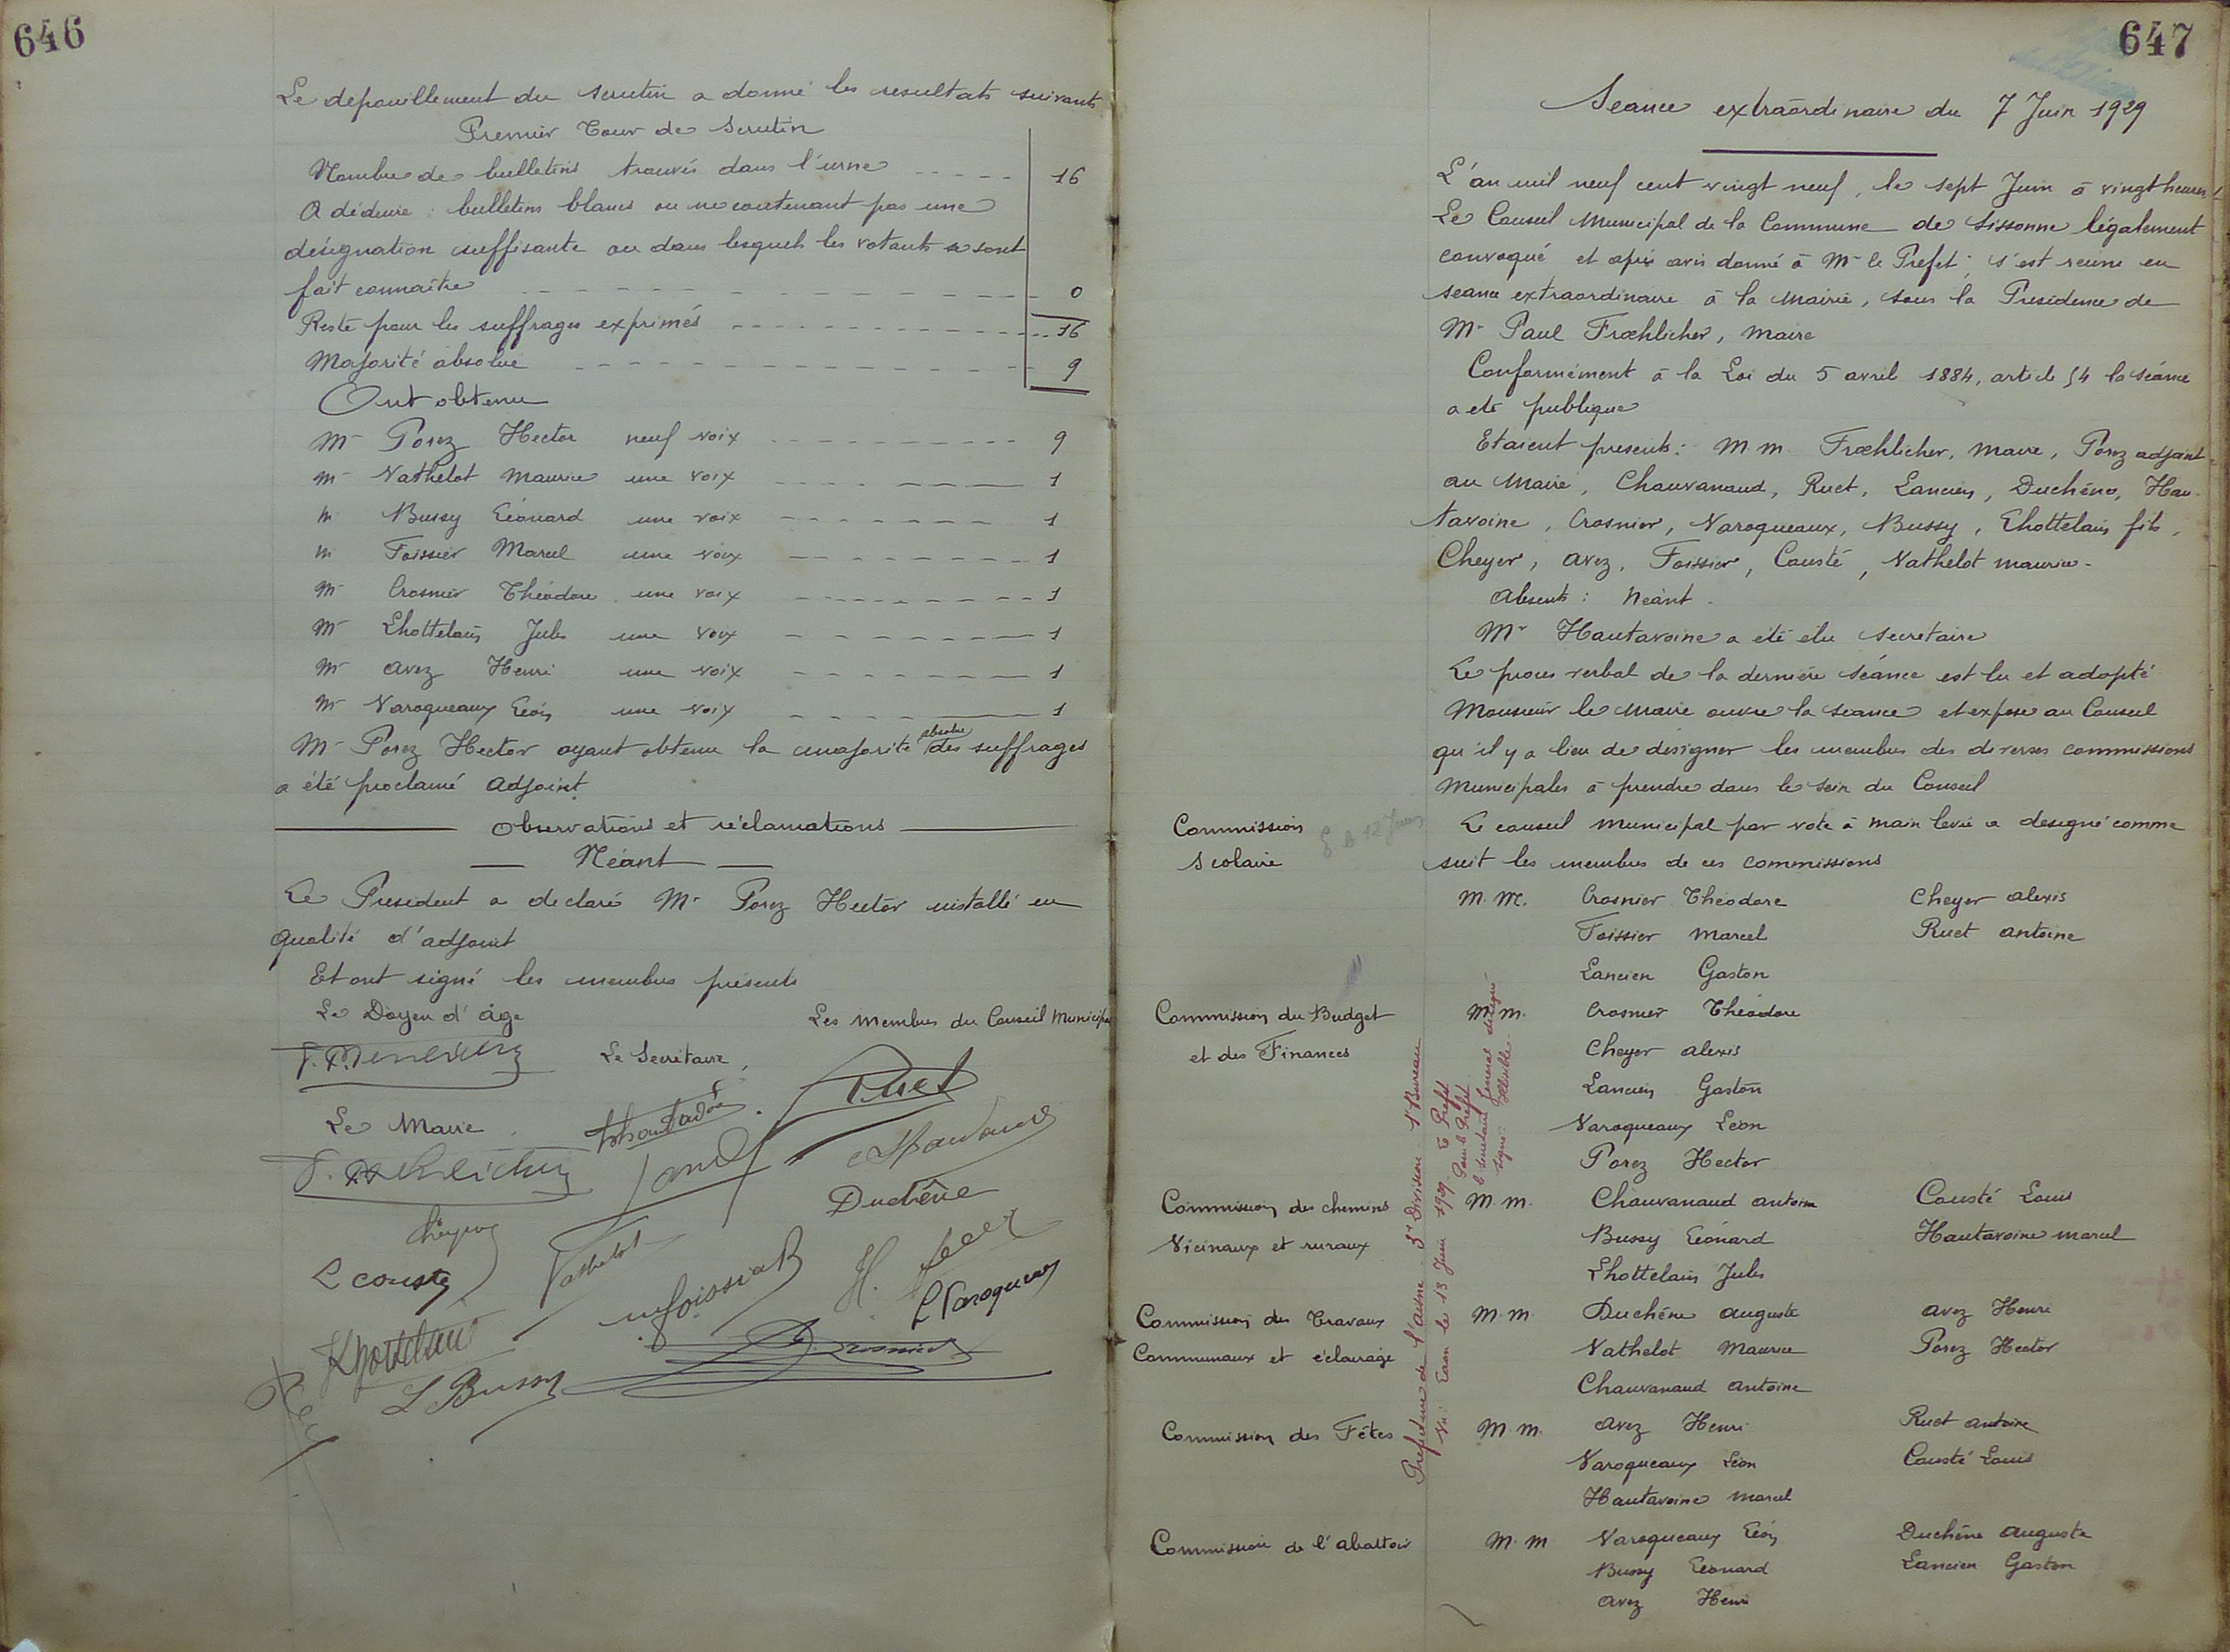 646
Le depouillement du scrutin a donné les resultats suivants
Premier Tour de Scrutin
Nombre de bulletins trouvés dans l'urne ----- 16
A déduire : bulletins blancs ou ne contenant pas une
désignation suffisante ou dans lesquels les votants se sont
fait connaître ----- 0
Reste pour les suffrages exprimés ----- 16
Majorité absolue ----- 9
Ont obtenu
Mr Porez Hector neuf voix ----- 9
Mr Nathelot Maurice une voix ----- 1
M Bussy Léonard une voix ----- 1
M Foissier Marcel une voix ----- 1
Mr Crosnier Théodore une voix ----- 1
Mr Lhottelain Jules une voix ----- 1
Mr Avez Henri une voix ----- 1
Mr Varoqueaux Léon une voix ----- 1
Mr Porez Hector ayant obtenu la majorité absolue des suffrages
a été proclamé Adjoint.
Observations et réclamations
Néant
Le President a declaré Mr Porez Hector installé en
qualité d'adjoint
Et ont signé les membres présents
Le Doyen d'âge
Les Membres du Conseil Municipal
Le Secrétaire,
Ruet
Le Maire
Duchêne
L Cousté
Nathelot
M Foissier
H. Avez
L Varoqueaux
Lhottelain
Crosnier
L Bussy
647
Seance extraordinaire du 7 Juin 1929
L'an mil neuf cent vingt neuf, le sept Juin à vingt heures,
Le Conseil Municipal de la Commune de Sissonne légalement
convoqué et après avis donné à Mr le Prefet, s'est réuni en
seance extraordinaire à la Mairie, sous la Présidence de
Mr Paul Frœhlicher, Maire
Conformément à la Loi du 5 avril 1884, article 54 la séance
a eté publique
Etaient presents : M.M. Frœhlicher, Maire, Porez adjoint
au Maire, Chauvanaud, Ruet, Lancien, Duchêne, Hau-
tavoine, Crosnier, Varoqueaux, Bussy, Lhottelain fils,
Cheyer, Avez, Foissier, Cousté, Nathelot Maurice.
Absents : Néant.
Mr Hautavoine a été élu secrétaire
Le proces verbal de la dernière séance est lu et adopté
Monsieur le Maire ouvre la séance et expose au Conseil
qu'il y a lieu de désigner les membres des diverses commissions
Municipales à prendre dans le sein du Conseil
Le conseil Municipal par vote à main levée a designé comme
suit les membres de ces commissions
Commission
Scolaire
12 Juin
M.M. Crosnier Théodore Cheyer Alexis
Foissier Marcel Ruet Antoine
Lancien Gaston
Commission du Budget
et des Finances
M.M. Crosnier Théodore
Cheyer Alexis
Lancien Gaston
Varoqueaux Léon
Porez Hector
Commission des chemins
Vicinaux et ruraux
M.M. Chauvanaud Antoine Cousté Louis
Bussy Léonard Hautavoine Marcel
Lhottelain Jules
Commission des Travaux
Communaux et éclairage
M.M. Duchêne Auguste Avez Henri
Nathelot Maurice Porez Hector
Chauvanaud Antoine
Commission des Fêtes
M.M. Avez Henri Ruet Antoine
Varoqueaux Léon Cousté Louis
Hautavoine Marcel
Commission de l'abattoir
M.M Varoqueaux Léon Duchêne Auguste
Bussy Léonard Lancien Gaston
Avez Henri
Préfecture de l'Aisne. 3e Division 1er Bureau
Vu: Laon le 13 Juin 1929 Le Préfet
Pour le Préfet
le Secrétaire Général délégué
Signé: